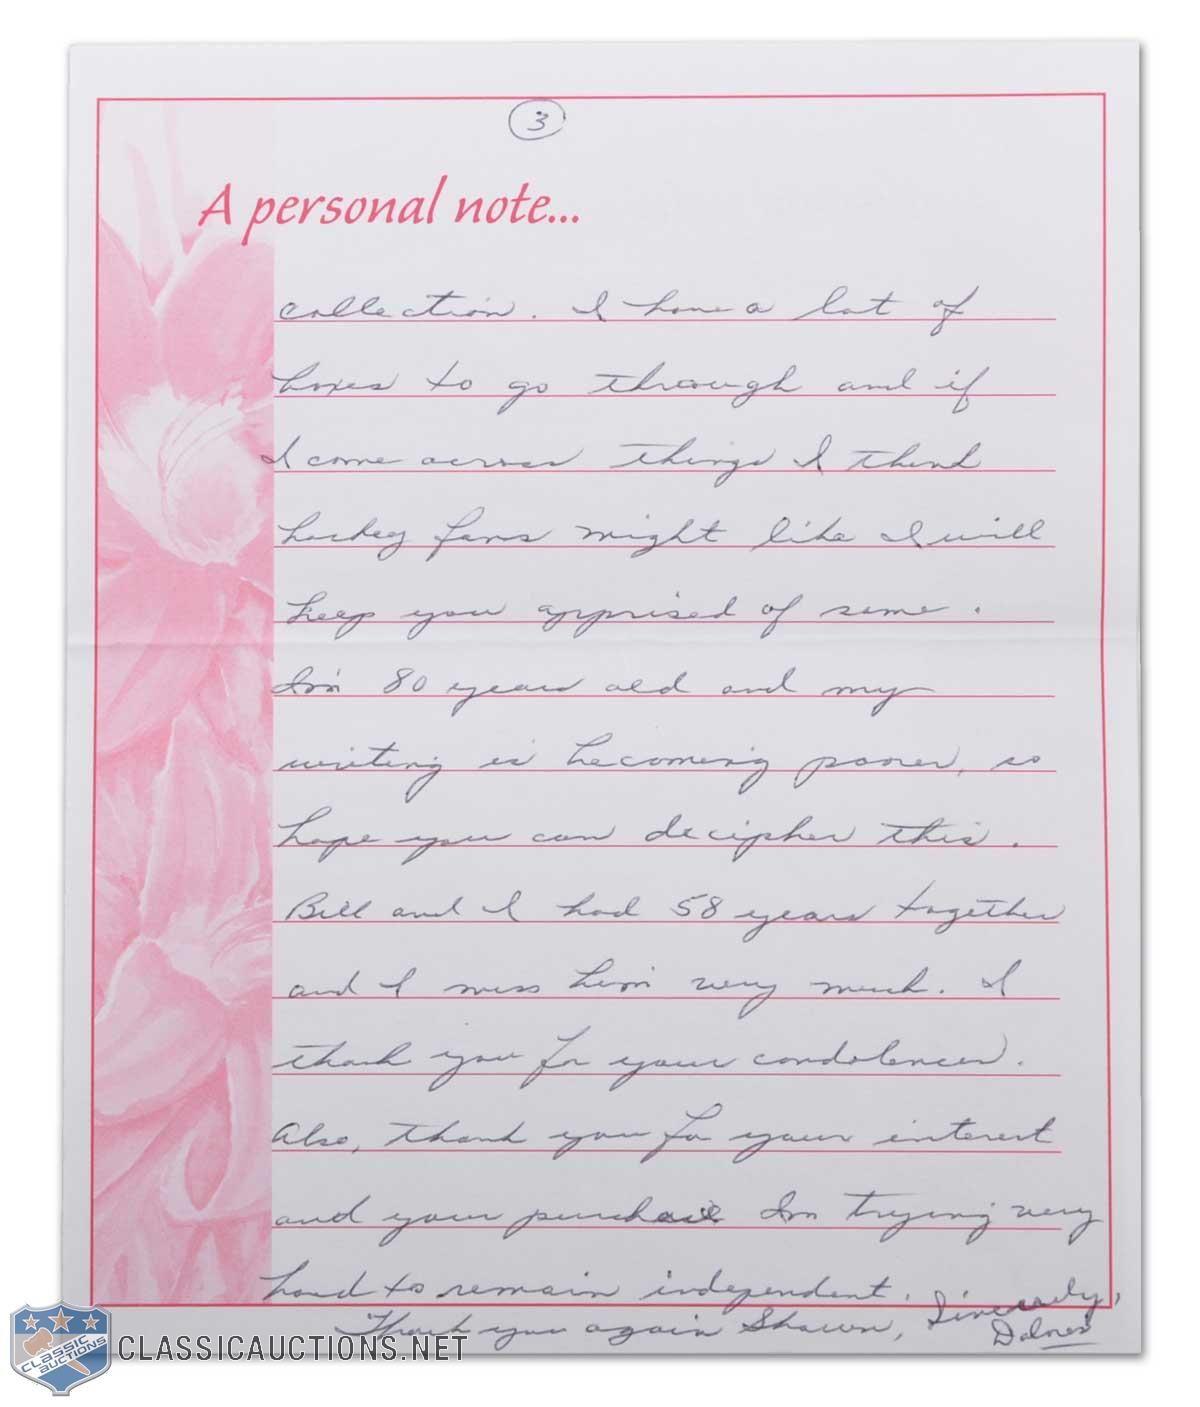 3
A personal note...
collection. I have a lot of
boxes to go through and if
I come across things I think
hockey fans might like I will
keep you apprised of same.
I'm 80 years old and my
writing is becoming poorer, so
hope you can decipher this.
Bill and I had 58 years together
and I miss him very much. I
thank you for your condolences.
Also, thank you for your interest
and your purchase I'm trying very
hard to remain independent.
Thank you again Shawn, Sincerely,
CLASSIC AUCTIONS
CLASSICAUCTIONS.NET